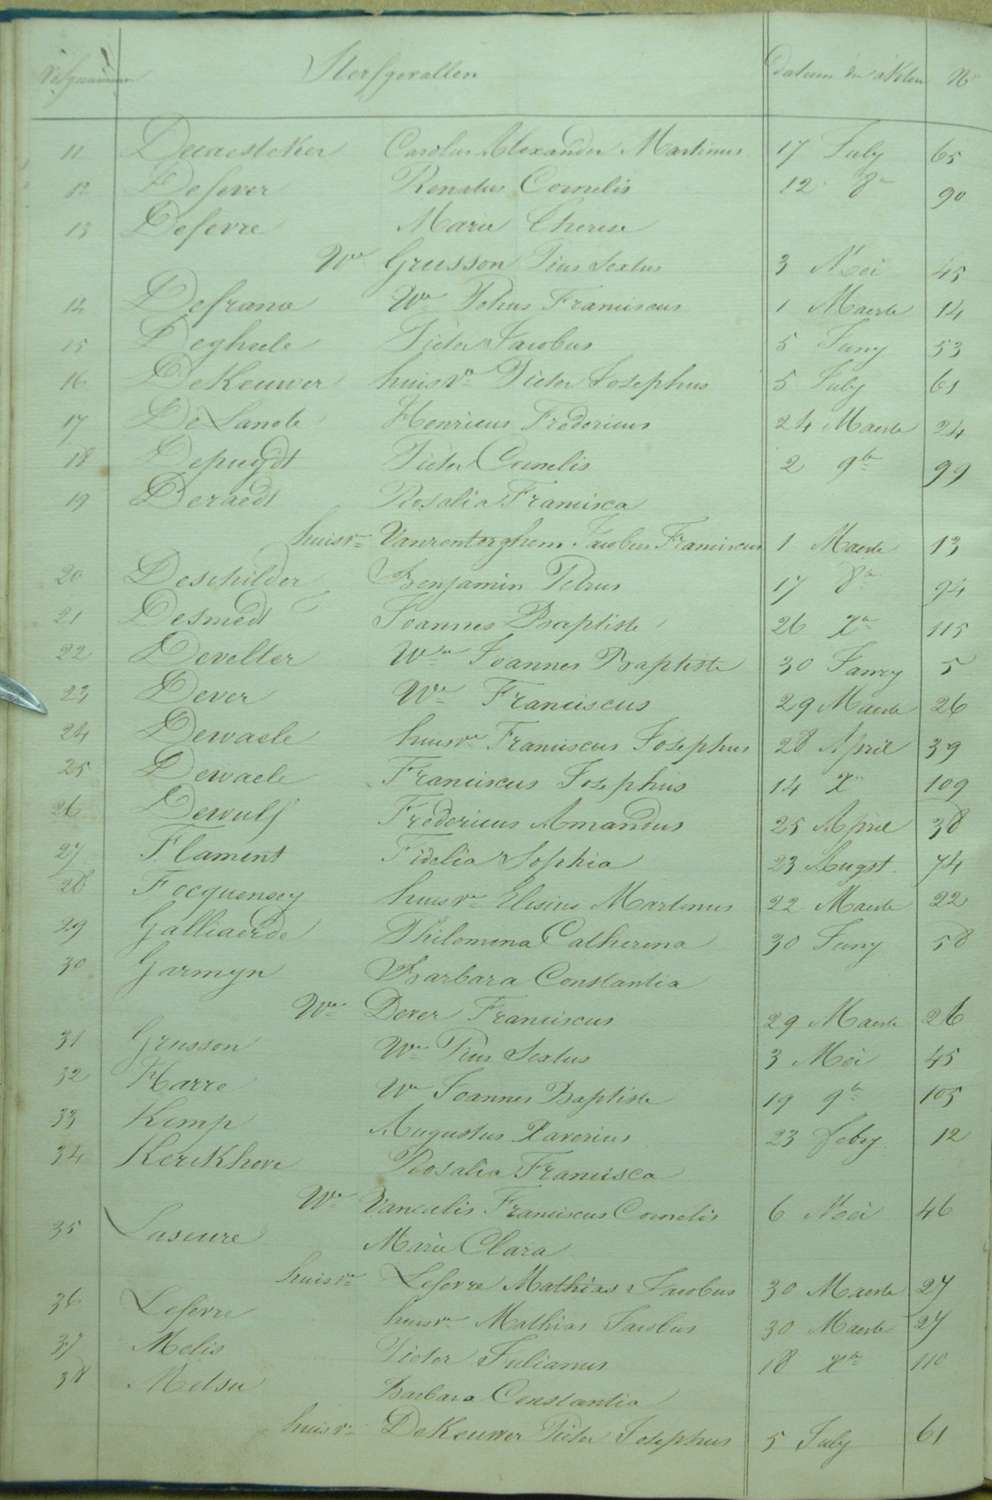 Volgnummer Sterfgevallen Datum der akten No
11 Decaesteker Carolus Alexander Martinus 17 July 65
12 Defever Renatus Cornelis 12 8re 90
13 Defevre Marie Therese
We Grusson Pius Sextus 3 Mei 45
14 Defranc We Petrus Franciscus 1 Maerte 14
15 Degheele Pieter Jacobus 5 Juny 53
16 DeKeuwer huisve Pieter Josephus 5 July 61
17 De Lanote Henricus Fredericus 24 Maerte 24
18 Depuydt Pieter Cornelis 2 9bre 99
19 Deraedt Rosalia Francisca
huisve Vanrentorghem Jacobus Franciscus 1 Maerte 13
20 Deschilder Benjamin Petrus 17 8re 94
21 Desmedt Joannes Baptiste 26 Xre 115
22 Develter We Joannes Baptiste 30 Janry 5
23 Dever We Franciscus 29 Maerte 26
24 Dewaele huisve Franciscus Josephus 28 April 39
25 Dewaele Franciscus Josephus 14 Xre 109
26 Dewulf Fredericus Amandus 25 April 38
27 Flament Fidelia Sophia 23 Augst 74
28 Focquensey huisve Elisius Martinus 22 Maerte 22
29 Galliaerde Philomena Catherina 30 Juny 58
30 Garmyn Barbara Constantia
We Dever Franciscus 29 Maerte 26
31 Grusson We Pius Sextus 3 Mei 45
32 Harre We Joannes Baptiste 19 9bre 105
33 Kemp Augustus Xaverius 23 Feby 12
34 Kerckhove Rosalia Francisca
We Vancalis Franciscus Cornelis 6 Mei 46
35 Laseure Marie Clara
huisve Lefevre Mathias Jacobus 30 Maerte 27
36 Lefevre huisve Mathias Jacobus 30 Maerte 27
37 Melis Pieter Julianus 18 Xbre 110
38 Metsu Barbara Constantia
huisve DeKeuwer Pieter Josephus 5 July 61